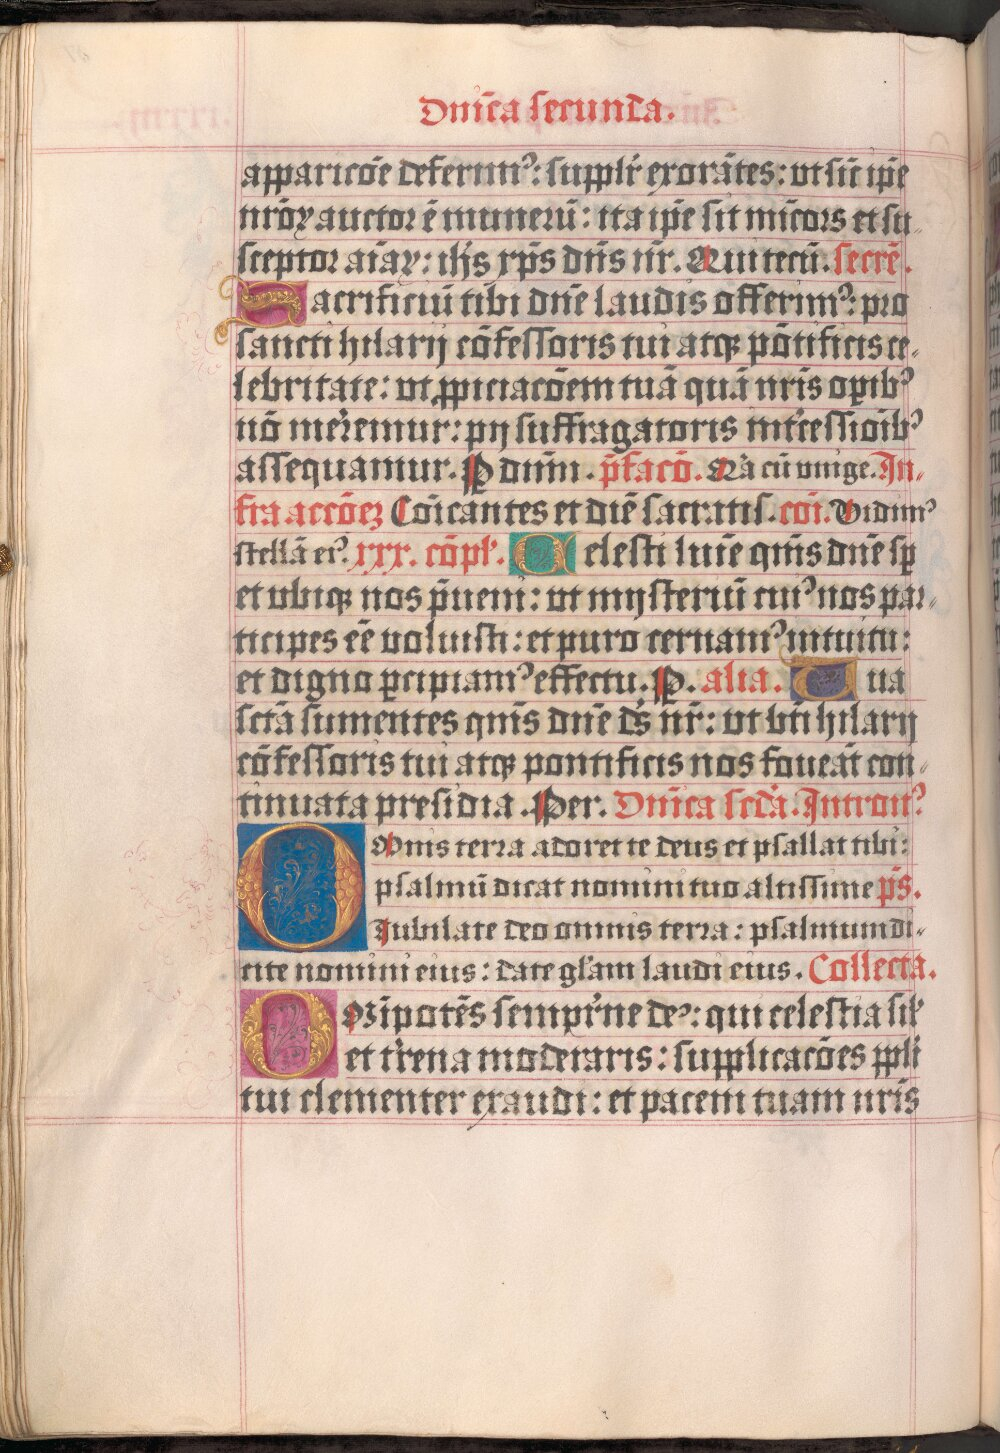 Dnīca secunda.
apparicōe deferim⁹: supplr̄ exorātes: ut sic̄ ip̄e
nr̄oꝝ auctor ē munerū: ita ip̄e sit mīcors et su-
sceptor aīaꝝ: ih̄s xp̄s dn̄s nr̄. Qui tecū. secrē.
Sacrificiū tibi dn̄e laudis offerim⁹: pro
sancti hilarij cōfessoris tui atqꝫ pōtificis ce-
lebritate: ut ꝓpiciacōem tuā quā nr̄is oꝑib⁹
nō mer̄emur: pij suffragatoris int̄cessioīb⁹
assequamur. P dnm̄. p̄facō. Q̄a cū unige. In-
fra accōeꝫ Cōicantes et diē sacratis. cōi. Vidim⁹
stellā ei⁹. xxx. cōpl. Celesti luīe qm̄s dn̄e sꝑ
et ubiqꝫ nos p̄ueni: ut mijsteriū cui⁹ nos par-
ticipes eē uoluisti: et puro cernam⁹ intuitu:
et digno ꝑcipiam⁹ effectu. P. alia. Tua
sct̄a sumentes qm̄s dn̄e ds̄ nr̄: ut bt̄i hilarij
cōfessoris tui atqꝫ pontificis nos foueāt con-
tinuata presidia. Per. Dnīca scd̄a. Introit⁹
Omnis terra adoret te deus et psallat tibi:
psalmū dicat nomini tuo altissime ps̄.
Jubilate deo omnis terra: psalmum di-
cite nomini eius: date gl̄am laudi eius. Collecta.
OMīpotēs sempit̄ne de⁹: qui celestia sil̄
et tr̄ena moderaris: supplicacōes ppl̄i
tui clementer exaudi: et pacem tuam nr̄is